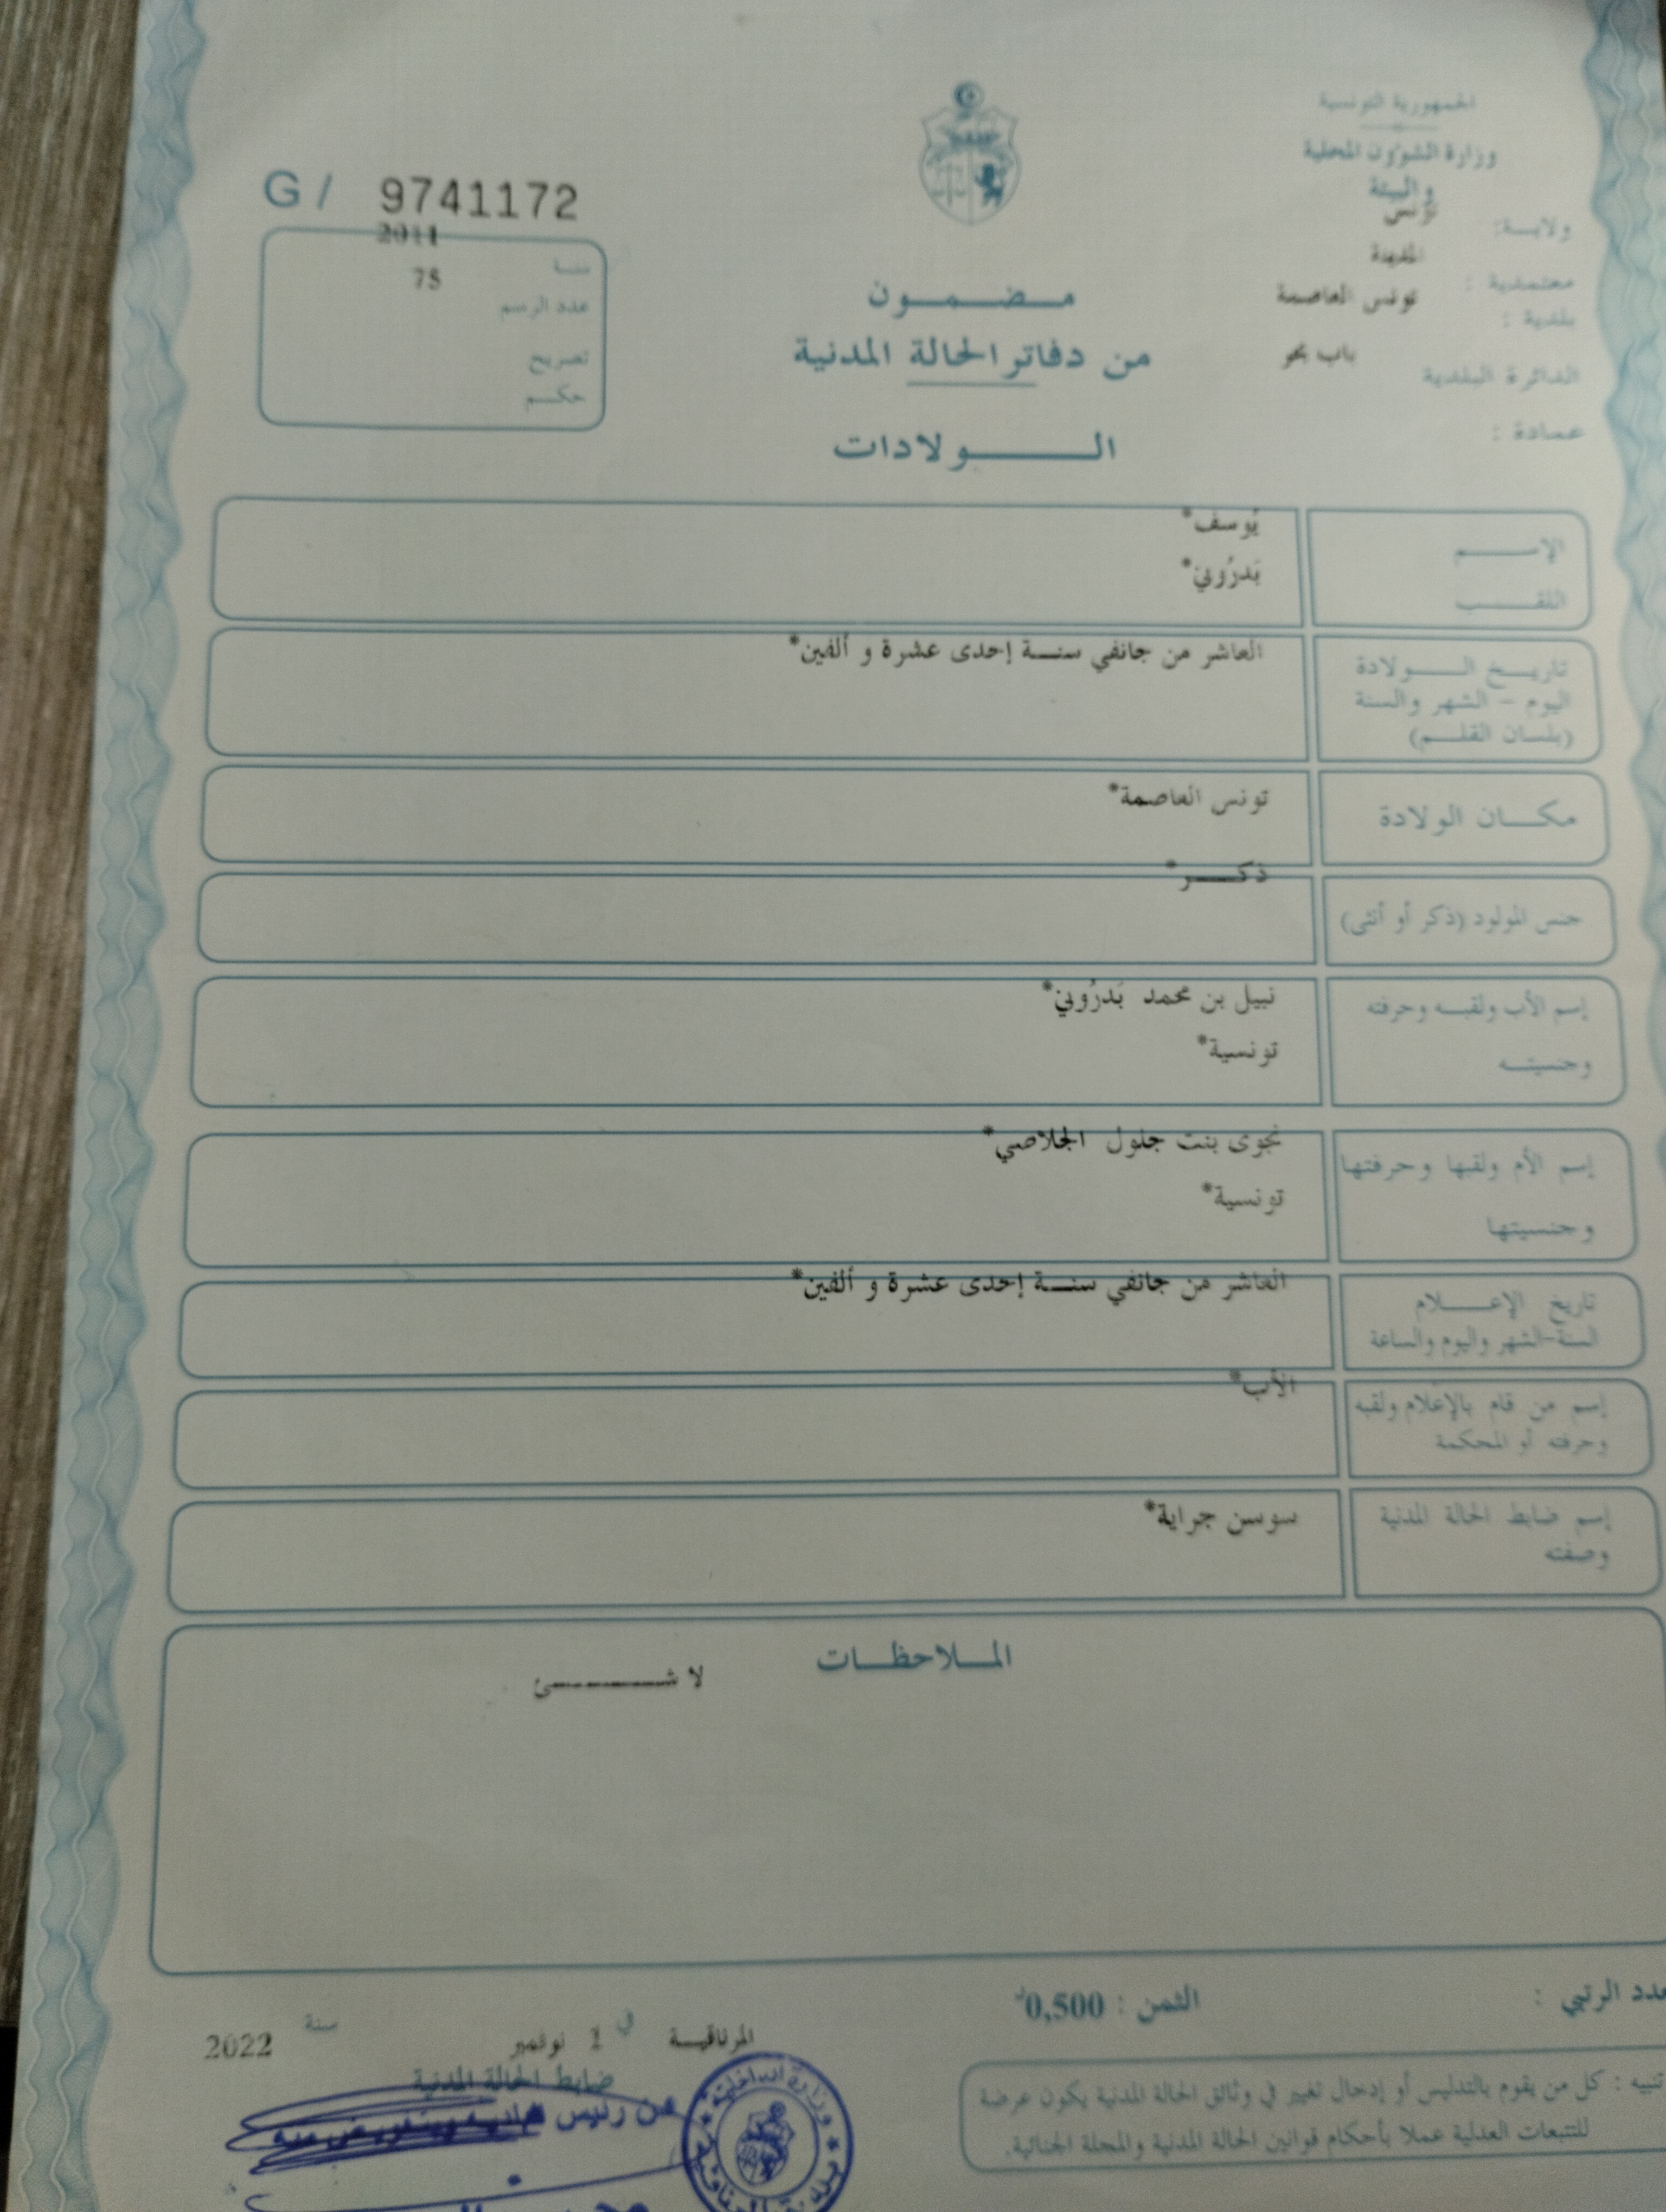 الجمهورية التونسية
وزارة الشؤون المحلية
والبيئة
ولايــة: تونس
معتمدية : المدينة
بلدية : تونس العاصمة
الدائرة البلدية باب بحر
عمادة :
G / 9741172
سنة 2011
عدد الرسم 75
تصريح
حكم
مضمون
من دفاتر الحالة المدنية
الولادات
الإسم يُوسف*
اللقب بَدرُوني*
تاريخ الولادة العاشر من جانفي سنة إحدى عشرة و ألفين*
اليوم - الشهر والسنة
(بلسان القلم)
مكان الولادة تونس العاصمة*
جنس المولود (ذكر أو أنثى) ذكر*
إسم الأب ولقبه وحرفته نبيل بن محمد بَدرُوني*
وجنسيته تونسية*
إسم الأم ولقبها وحرفتها نجوى بنت جلول الجلاصي*
وجنسيتها تونسية*
تاريخ الإعلام العاشر من جانفي سنة إحدى عشرة و ألفين*
السنة-الشهر واليوم والساعة
إسم من قام بالإعلام ولقبه الأب*
وحرفته أو المحكمة
إسم ضابط الحالة المدنية سوسن جراية*
وصفته
الملاحظات
لا شئ
عدد الرتبي :
الثمن : 0,500د
المرناقية في 1 نوفمبر سنة 2022
ضابط الحالة المدنية
عن رئيس
وزارة الداخلية
تنبيه : كل من يقوم بالتدليس أو إدخال تغيير في وثائق الحالة المدنية يكون عرضة
للتتبعات العدلية عملا بأحكام قوانين الحالة المدنية والمجلة الجنائية.